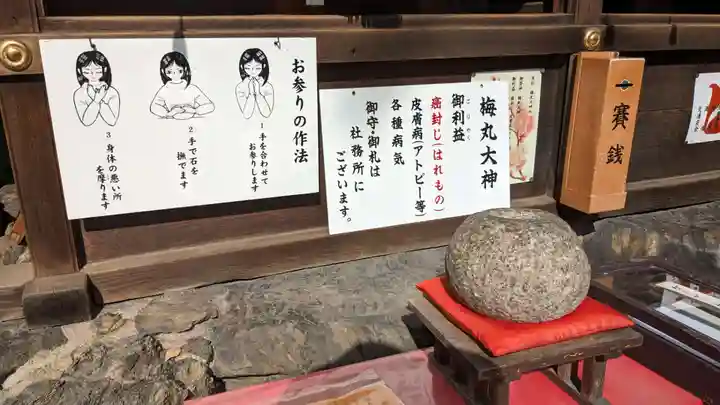 お参りの作法
1 手を合わせて
お参りします
2 手で石を
撫でます
3 身体の悪い所
を摩ります
梅丸大神
ごりやく
御利益
癌封じ(はれもの)
皮膚病(アトピー等)
各種病気
御守・御札は
社務所に
ございます。
賽銭